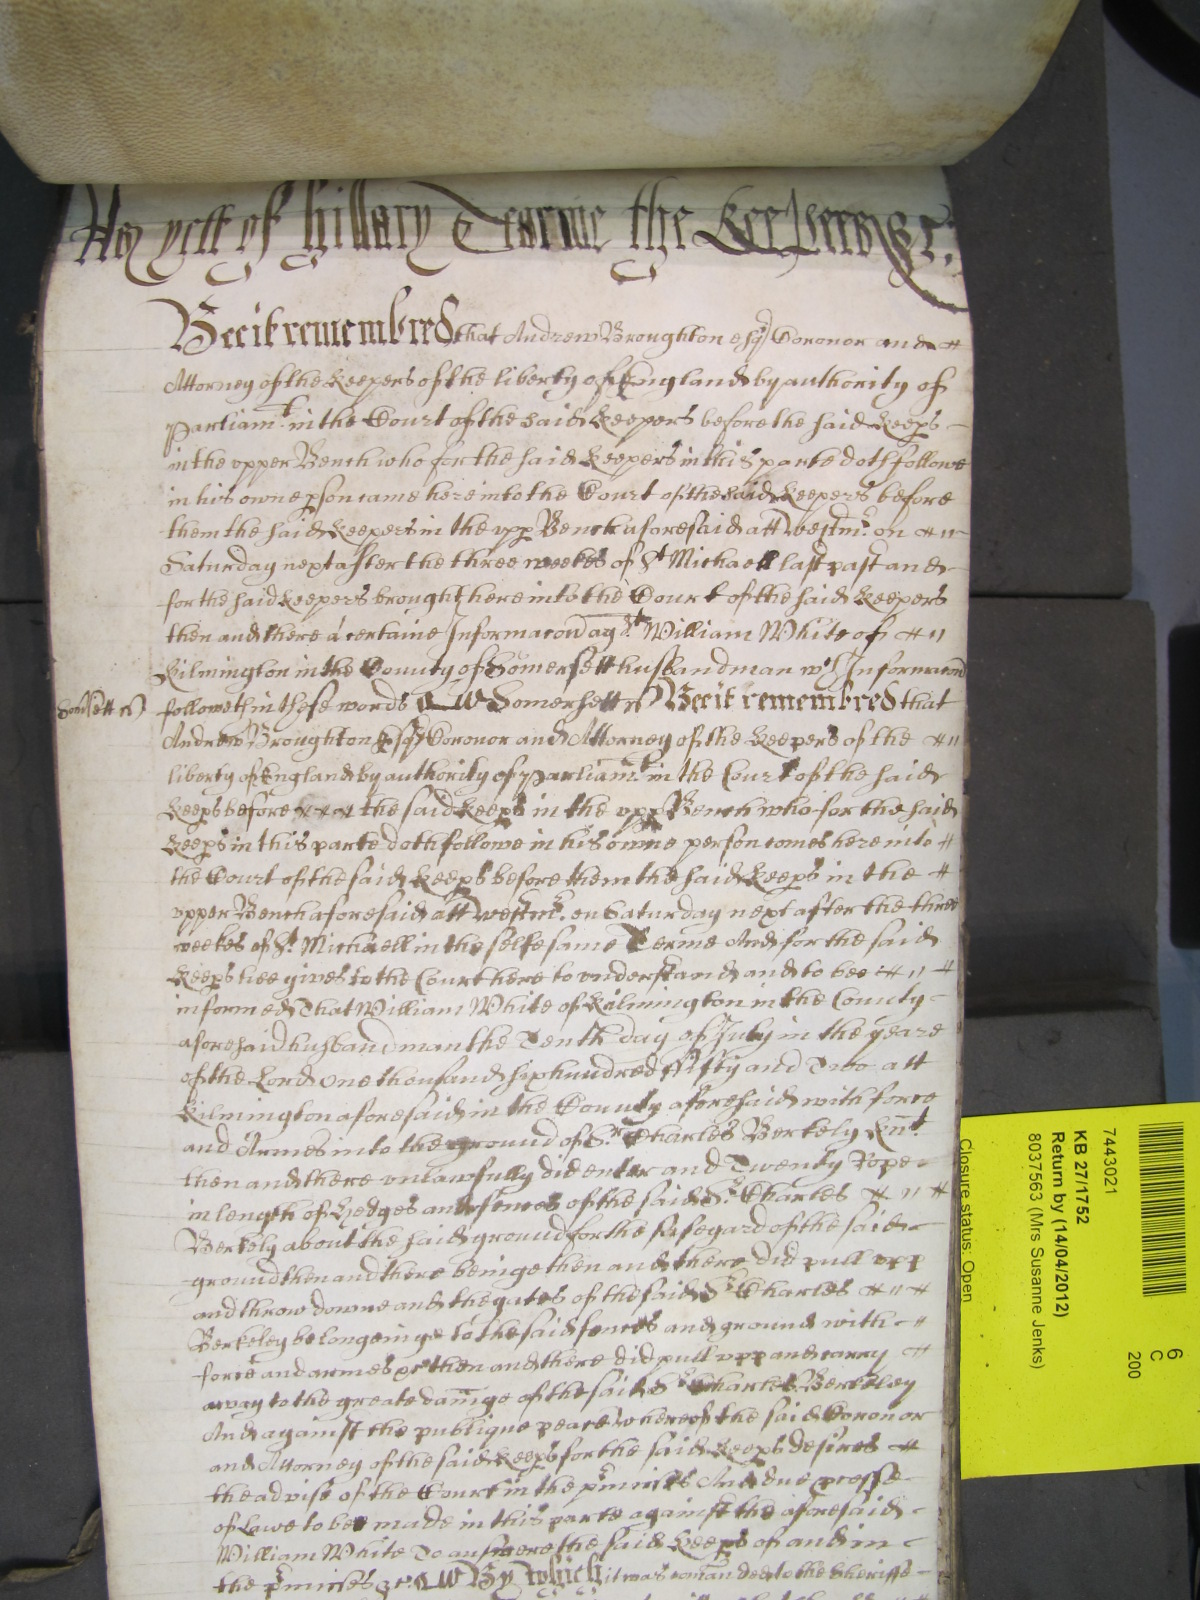 As yett of Hillary Tearme the Keepers &c.
Bee it remembred that Andrew Broughton esq Coronor and
Attorney of the Keepers of the liberty of England by authority of
Parliamt. in the Court of the said Keepers before the said Keeps
in the vpper Bench who for the said Keepers in this parte doth followe
in his owne pson came here into the Court of the said Keepers before
them the said Keepers in the vpp Bench aforesaid att Westmr. on
Saturday next after the three weekes of St Michaell last past and
for the said Keepers brought here into the Court of the said Keepers
then and there a certaine Informacon agt William White of
Kilmington in the County of Somersett husbandman wch Informacon
Somsett ss followeth in these words Somersett ss Bee it remembred that
Andrew Broughton Esq Coronor and Attorney of the Keepers of the
liberty of England by authority of Parliamt. in the Court of the said
Keeps before the said Keeps in the vpp Bench who for the said
Keeps in this parte doth followe in his owne person comes here into
the Court of the said Keeps before them the said Keeps in the
vpper Bench aforesaid att Westmr. on Saturday next after the three
weekes of St. Michaell in the selfe same Terme And for the said
Keeps hee gives to the Court here to vnderstand and to bee
informed That William White of Kilmington in the County
aforesaid husbandman the Tenth day of July in the yeare
of the Lord one thousand six hundred ffifty and Two att
Kilmington aforesaid in the County aforesaid with force
and Armes into the ground of Sr. Charles Berkely Knt.
then and there vnlawfully did enter and Twenty Rope
in length of Hedges and fences of the said Sr. Charles
Berkely about the said ground for the safegard of the said
ground then and there beinge then and there did pull vpp
and throw downe and the gates of the said Sr Charles
Berkeley belongeinge to the said fences and ground with
force and armes &c then and there did pull vpp and carry
away to the greate damage of the said Sr Charles Berkeley
And against the publique peace Whereof the said Coronor
and Attorney of the said Keeps for the said Keeps desires
the advise of the Court in the pmisses And due prosse
of Lawe to bee made in this parte against the aforesaid
William White To answere the said Keeps of and in
the pmisses &c. By which it was comanded to the Sheriffe
7443021
KB 27/1752
Return by (14/04/2012)
8037563 (Mrs Susanne Jenks)
Closure status: Open
6
C
200